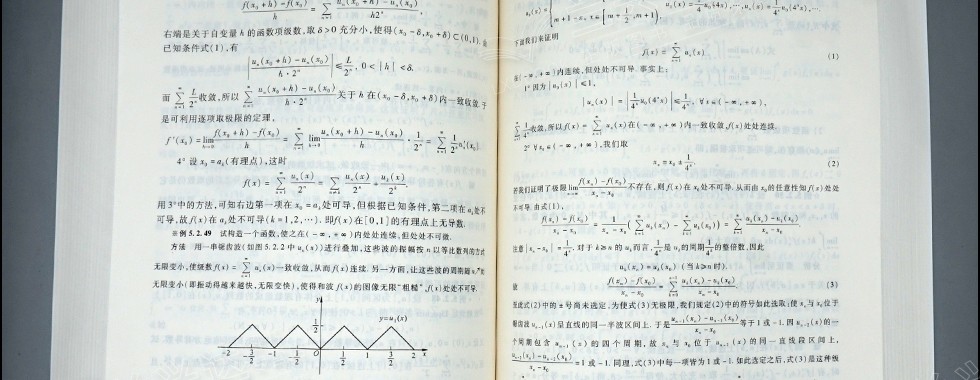 f(x₀+h)-f(x₀) / h = Σ uₙ(x₀+h)-uₙ(x₀) / h2ⁿ
右端是关于自变量 h 的函数项级数,取 δ>0 充分小,使得(x₀-δ,x₀+δ)⊂(0,1).
已知条件式(1),有
|uₙ(x₀+h)-uₙ(x₀) / h·2ⁿ| ≤ L/2ⁿ, 0<|h|<δ.
而 Σ L/2ⁿ 收敛,所以 Σ uₙ(x₀+h)-uₙ(x₀) / h·2ⁿ 关于 h 在(x₀-δ,x₀+δ)内一致收敛.于
是可利用逐项取极限的定理,
f'(x₀)=lim f(x₀+h)-f(x₀) / h = Σ lim uₙ(x₀+h)-uₙ(x₀) / h · 1/2ⁿ = Σ 1/2ⁿ u'ₙ(x₀).
4° 设 x₀=aₖ(有理点),这时
f(x) = Σ uₙ(x)/2ⁿ = Σ uₙ(x)/2ⁿ + uₖ(x)/2ᵏ
用3°中的方法,可知右边第一项在 x₀=aₖ 处可导,但根据已知条件,第二项在 aₖ 处不
可导,故 f(x)在 aₖ 处不可导(k=1,2,…).即 f(x)在[0,1]的有理点上无导数.
※例 5.2.49 试构造一个函数,使之在(-∞,+∞)内处处连续,但处处不可微.
方法 用一串锯齿波(如图 5.2.2 中 uₙ(x))进行叠加,这些波的振幅按 n 以等比数列的方式
无限变小,使级数 f(x)=Σ uₙ(x)一致收敛,从而 f(x)连续.另一方面,让这些波的周期随 n
无限变小(即振动得越来越快,无限变快),使得和波 f(x)的图像无限“粗糙”,f(x)处处不可导.
y
1/2
y=u₁(x)
-2 -3/2 -1 -1/2 O 1/2 1 3/2 2 x
m+1-x, x∈[m+1/2,m+1)
下面我们来证明
f(x)=Σ uₙ(x) (1)
在(-∞,+∞)内连续,但处处不可导.事实上:
1° 因为|u₀(x)|≤1,
|uₙ(x)|=|1/4ⁿ u₀(4ⁿx)|≤1/4ⁿ, ∀x∈(-∞,+∞),
Σ 1/4ⁿ 收敛,所以 f(x)=Σ uₙ(x)在(-∞,+∞)内一致收敛,f(x)处处连续.
2° ∀x₀∈(-∞,+∞),我们取
xₙ=x₀±1/4ⁿ (2)
若我们证明了极限 lim f(xₙ)-f(x₀) / xₙ-x₀ 不存在,则 f(x)在 x₀ 处不可导.从而由 x₀ 的任意性知 f(x)处处
不可导.由式(1),
f(xₙ)-f(x₀) / xₙ-x₀ = 1/xₙ-x₀ (Σ uₖ(xₙ)-Σ uₖ(x₀)) = Σ uₖ(xₙ)-uₖ(x₀) / xₙ-x₀
注意|xₙ-x₀|=1/4ⁿ,对于 k≥n 的 uₖ 而言,1/4ⁿ 是 uₖ 的周期 1/4ᵏ 的整倍数,因此
uₖ(xₙ)=uₖ(x₀)(当 k≥n 时).
故 f(xₙ)-f(x₀) / xₙ-x₀ = Σ uₖ(xₙ)-uₖ(x₀) / xₙ-x₀ (3)
至此式(2)中的±号尚未选定.为使式(3)无极限,我们规定(2)中的符号如此选取:使 xₙ 与 x₀ 位于
锯齿波 uₙ₋₁(x)呈直线的同一半波区间上.于是 uₙ₋₁(xₙ)-uₙ₋₁(x₀) / xₙ-x₀ 等于 1 或-1.因 uₙ₋₂(x)的一
个周期包含 uₙ₋₁(x)的四个周期,故 xₙ 与 x₀ 位于 uₙ₋₂(x)的同一直线段区间上,
uₙ₋₂(xₙ)-uₙ₋₂(x₀) / xₙ-x₀ =1 或-1.同理,式(3)中每一项皆为 1 或-1.如此选定之后,式(3)是这种级